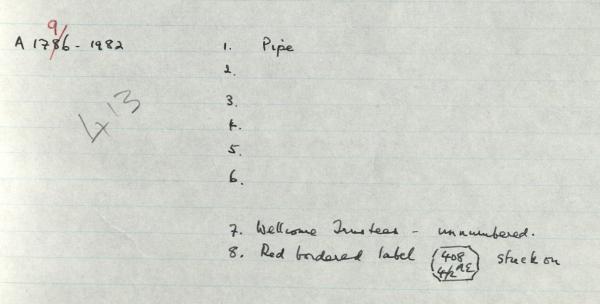 9
A 1786 - 1982
413
1. Pipe
2.
3.
4.
5.
6.
7. Wellcome Trustees - unnumbered.
8. Red bordered label 408 stuck on